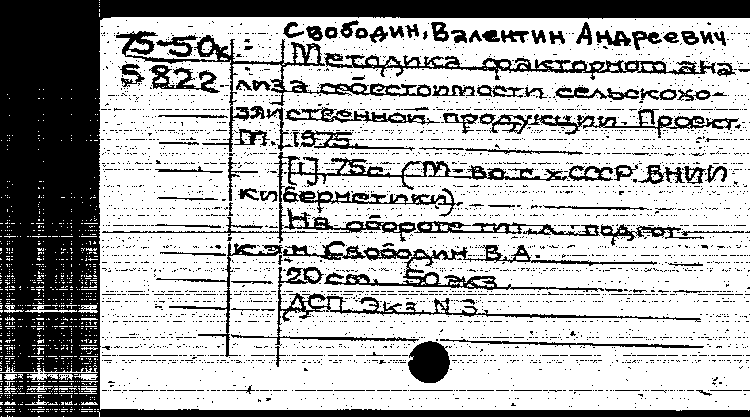 Свободин, Валентин Андреевич
75-50к.: Методика факторного ана-
5822 лиза себестоимости сельскохо-
зяйственной продукции. Проект.
М. 1975.
[1], 75с. (М-во с.х.СССР. ВНИИ
кибернетики).
На обороте тит.л.: подгот.
к.э.н. Свободин В.А.
20 см. 50 экз.
ДСП. Экз. N 3.